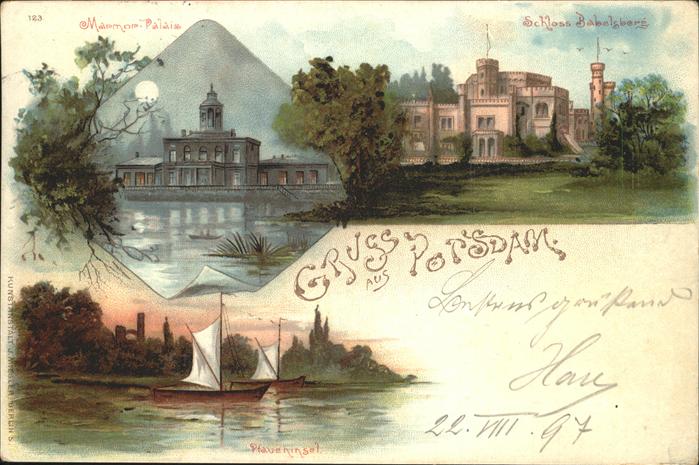 123
Marmor-Palais
Schloss Babelsberg
GRUSS
AUS
POTSDAM.
Bestens grüßend
22.VIII.97
Pfaueninsel.
KUNSTANSTALT J. MIESLER, BERLIN S.